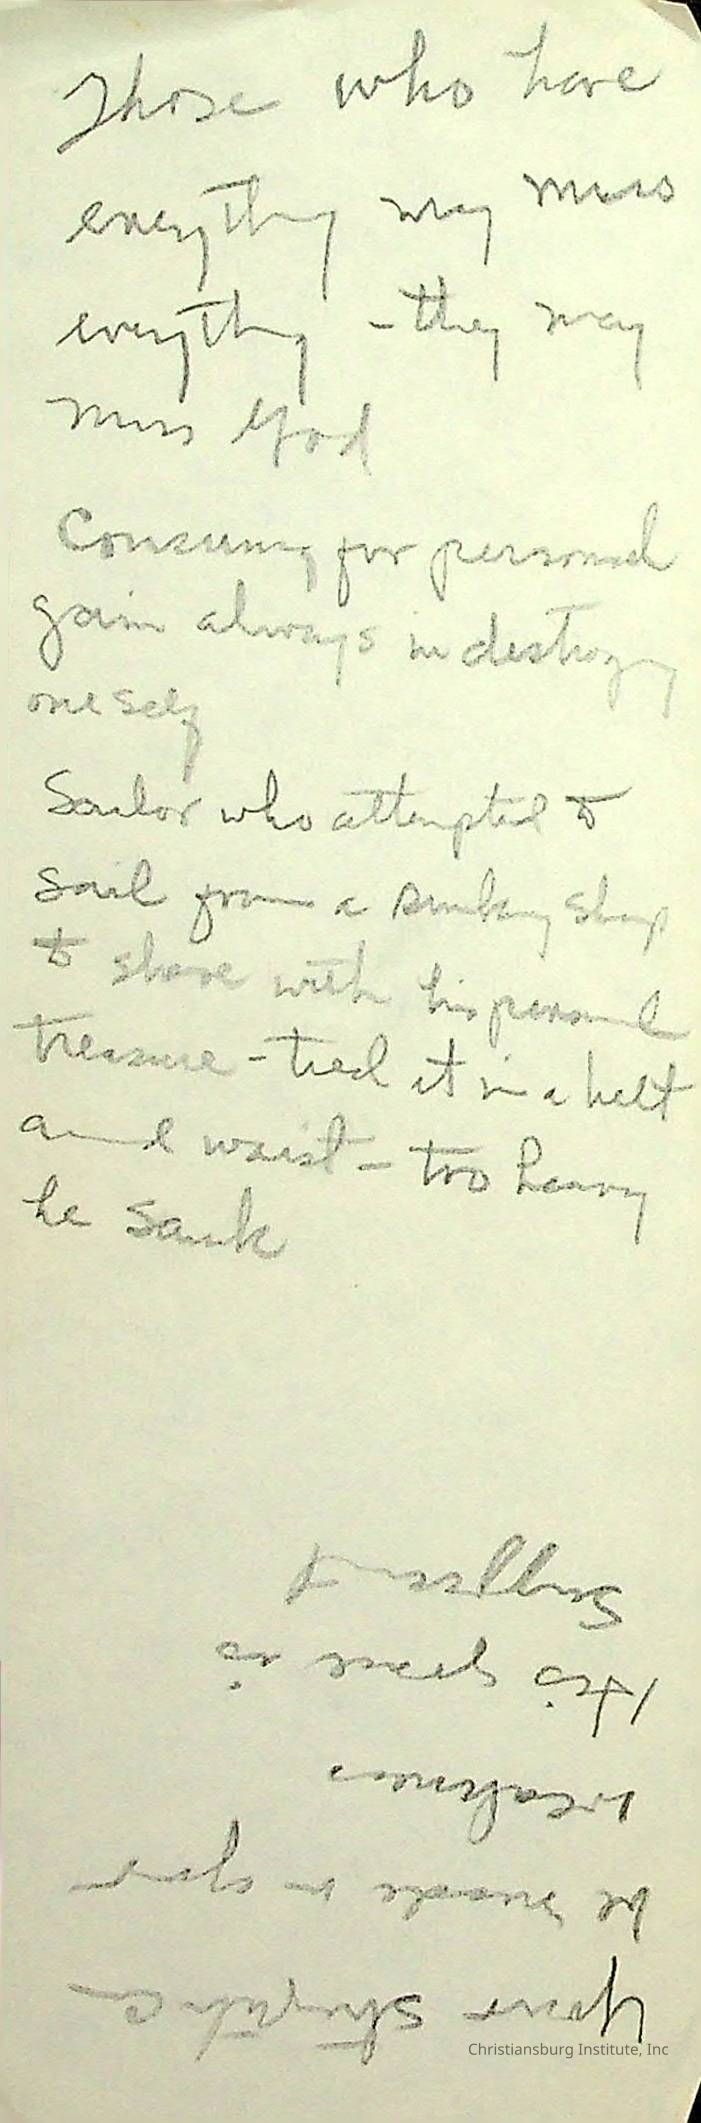 Those who have
everything may miss
everything - they may
miss God
Consuming for personal
gain always in destroying
oneself
Sailor who attempted to
sail from a sinking ship
to shore with his personal
treasure - tied it in a belt
around waist - too heavy
he sank
Your strength is
be made in your
weakness
His grace is
Sufficient
Christiansburg Institute, Inc